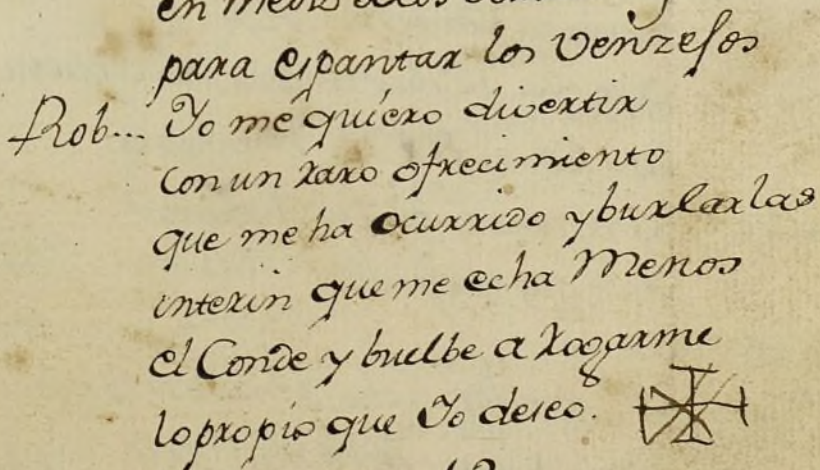 en medio
para espantar los Venzesos
Rob... Yo me quiero divertir
con un raro ofrecimiento
que me ha ocurrido y burlarlas
interin que me echa Menos
el Conde y buelbe a Rogarme
lo propio que Yo deseo.